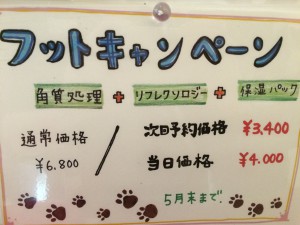 フットキャンペーン
角質処理 + リフレクソロジー + 保湿パック
通常価格 ¥6.800
次回予約価格 ¥3,400
当日価格 ¥4.000
5月末まで.